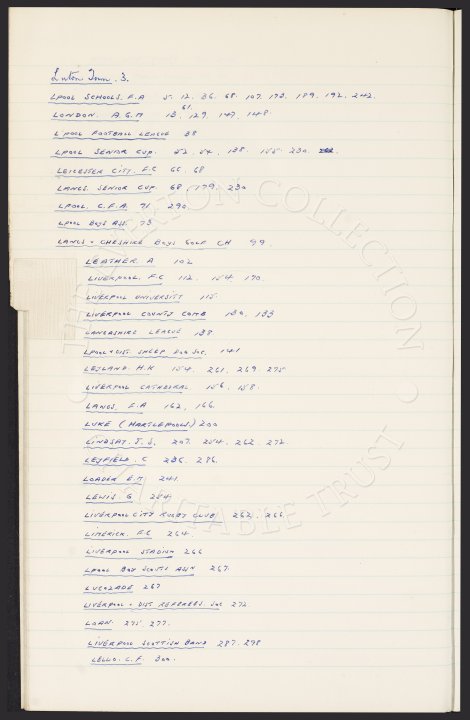 Luton Town. 3.
LPOOL SCHOOLS. F.A 5. 12. 36. 68. 107. 173. 189. 192. 242.
LONDON. A.G.M 13. 61. 129. 147. 148.
L'POOL FOOTBALL LEAGUE 38
LPOOL SENIOR CUP. 52. 54. 138. 155. 230.
LEICESTER CITY. F.C 66. 68
LANCS. SENIOR CUP. 68. 179. 230
LPOOL. C.F.A. 71. 290.
LPOOL BOYS ASS. 73
LANCS & CHESHIRE BOYS GOLF CH 99.
LEATHER. A 102
LIVERPOOL. F.C 112. 154. 170.
LIVERPOOL UNIVERSITY 115.
LIVERPOOL COUNTY COMB 130. 133
LANCASHIRE LEAGUE 138.
LPOOL & DIST. SHEEP DOG SOC. 141
LEYLAND. H.K 154. 261. 269. 275
LIVERPOOL CATHEDRAL 156. 158.
LANCS. F.A 162. 166.
LUKE (HARTLEPOOLS) 200
LINDSAY. J. S. 207. 254. 262. 272
LEYFIELD. C 236. 286.
LOADER E.M 241.
LEWIS G 254
LIVERPOOL CITY RUGBY CLUB 262. 266.
LIMERICK. F.C 264.
LIVERPOOL STADIUM 266
LPOOL BOY SCOUTS ASSN 267.
LUCOZADE 267
LIVERPOOL & DIST REFEREES. SOC 272.
LOAN. 275 277.
LIVERPOOL SCOTTISH BAND 287. 298
LELLO. C.F. 300.
THE EVERTON COLLECTION
CHARITABLE TRUST